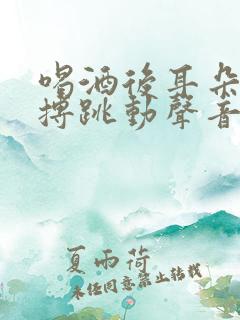 喝酒後耳朵
搏跳動聲音
夏雨荷
未经同意禁止转载